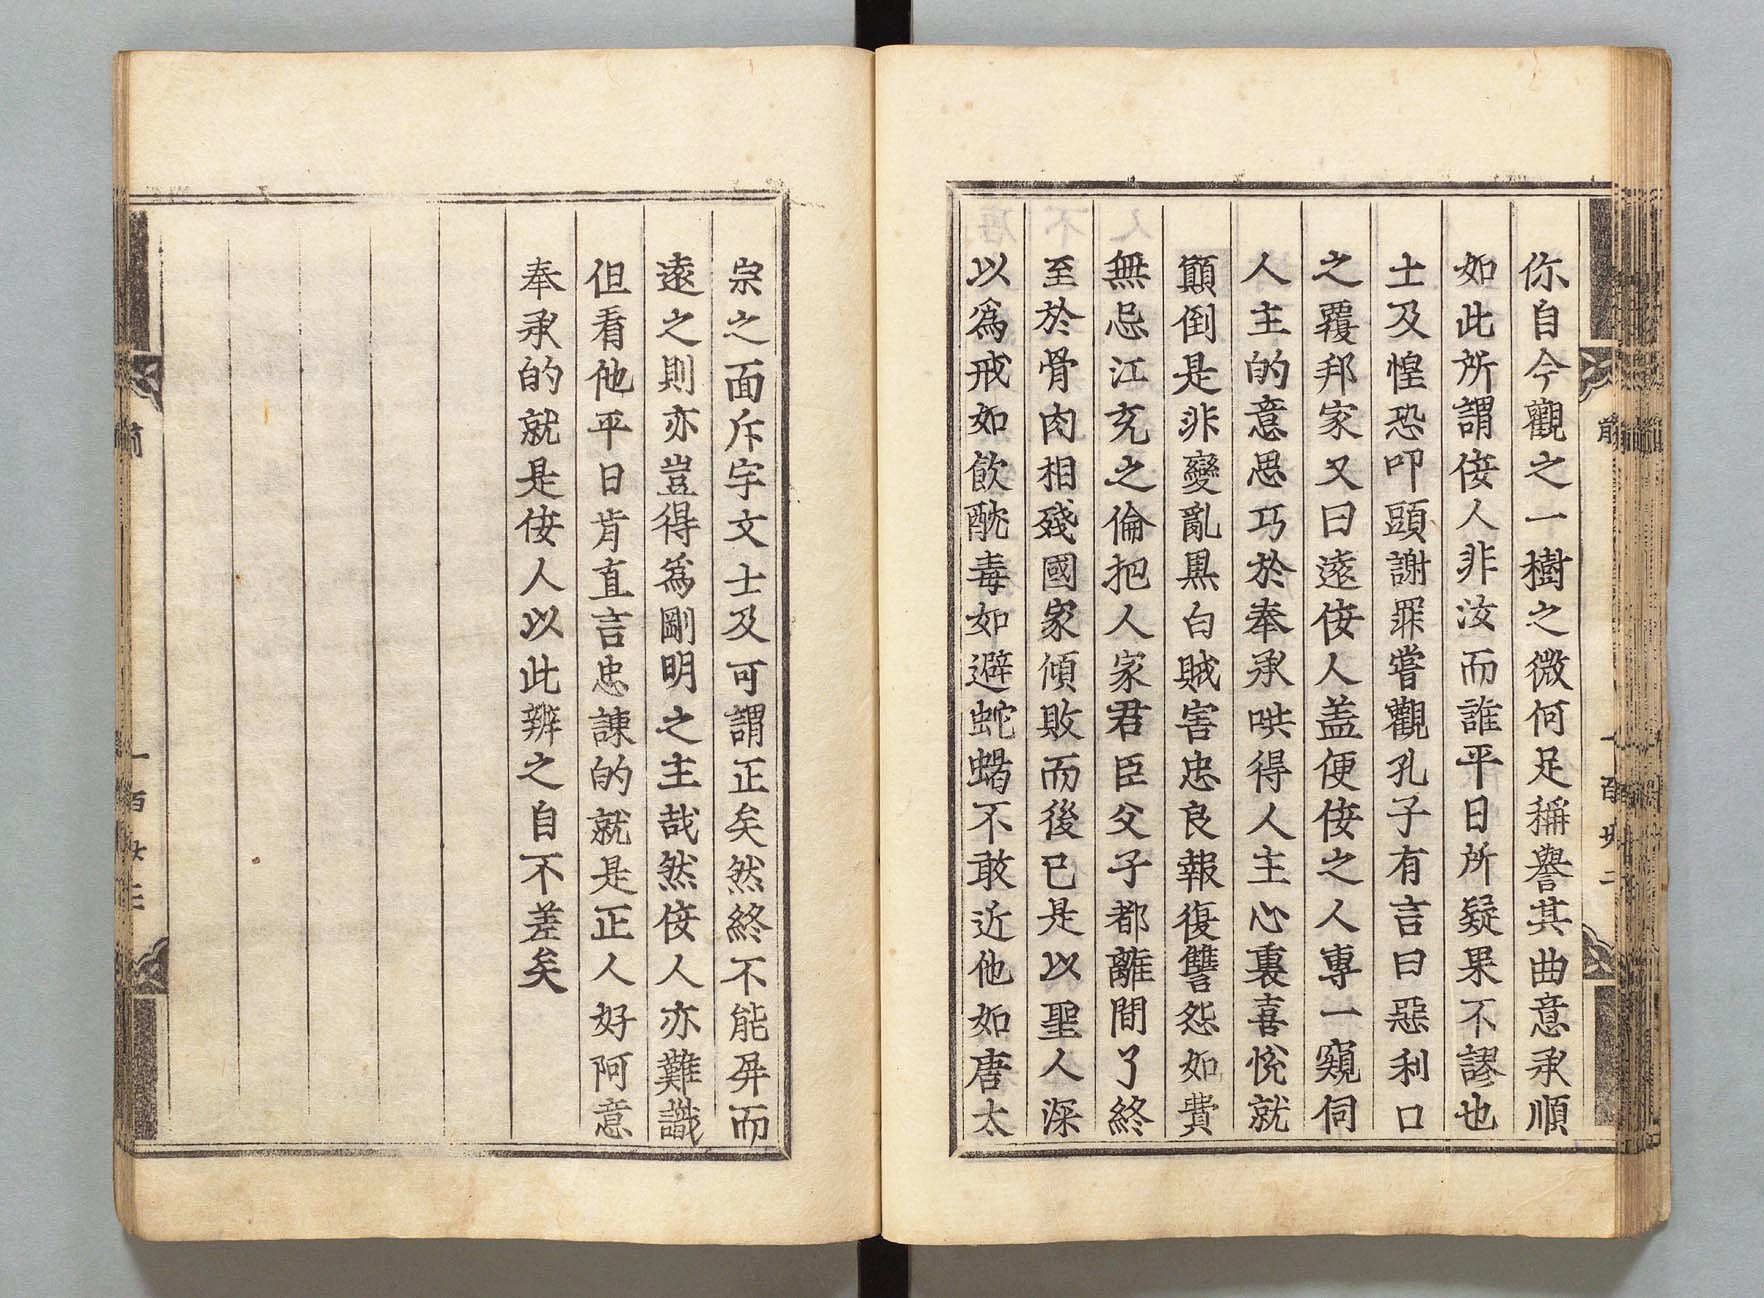 你自今觀之一樹之微何足稱譽其曲意承順
如此所謂佞人非汝而誰平日所疑果不謬也
士及惶恐叩頭謝罪嘗觀孔子有言曰惡利口
之覆邦家又曰遠佞人盖便佞之人專一窺伺
人主的意思巧於奉承哄得人主心裏喜悅就
顛倒是非變亂黒白賊害忠良報復讐怨如費
無忌江充之倫把人家君臣父子都離間了終
至於骨肉相殘國家傾敗而後已是以聖人深
以爲戒如飲酖毒如避蛇蝎不敢近他如唐太
宗之面斥宇文士及可謂正矣然終不能屏而
遠之則亦豈得爲剛明之主哉然佞人亦難識
但看他平日肯直言忠諫的就是正人好阿意
奉承的就是佞人以此辨之自不差矣
前
一百廿二
一百廿三